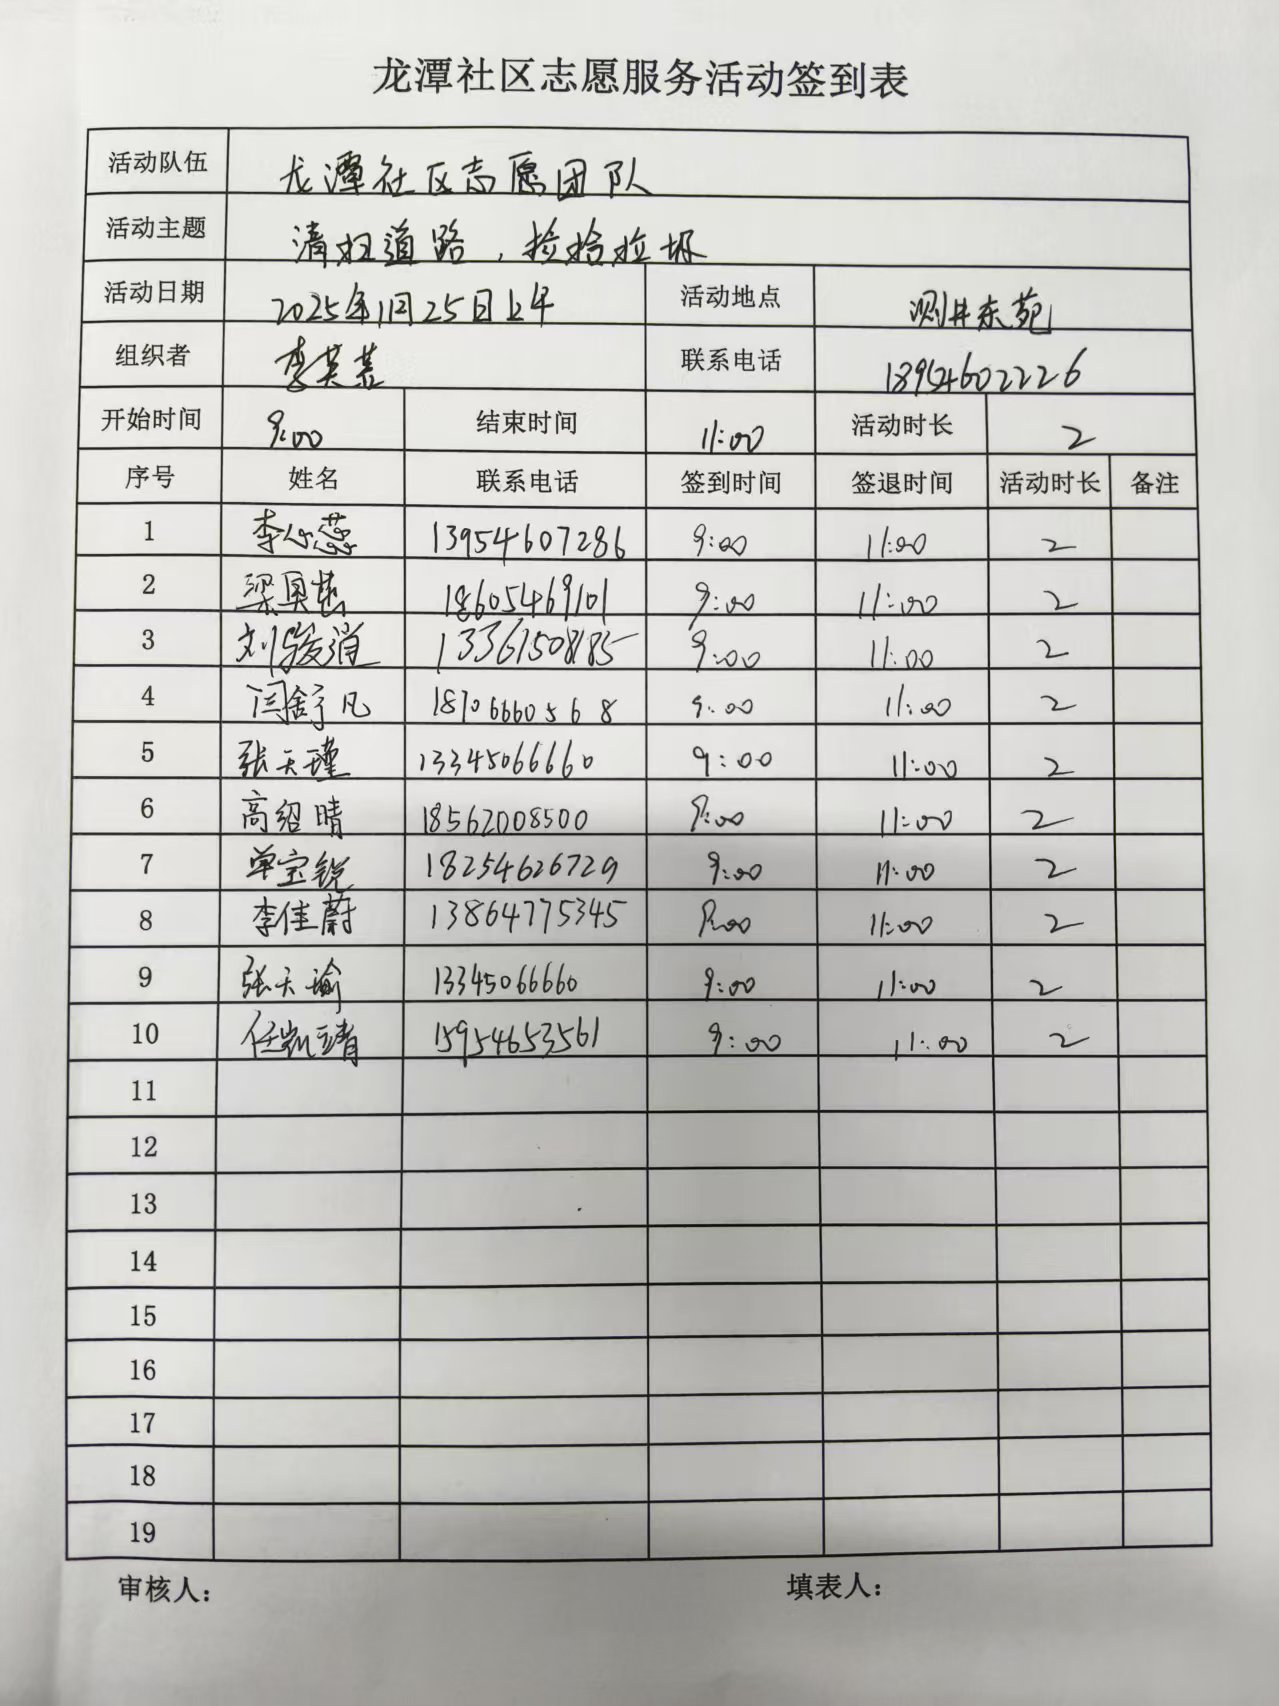 龙潭社区志愿服务活动签到表
活动队伍 龙潭社区志愿团队
活动主题 清扫道路，捡拾垃圾
活动日期 2025年1月25日上午 活动地点 测井东苑
组织者 李英 联系电话 18954602226
开始时间 9:00 结束时间 11:00 活动时长 2
序号 姓名 联系电话 签到时间 签退时间 活动时长 备注
1 李心蕊 13954607286 9:00 11:00 2
2 梁 18605469101 9:00 11:00 2
3 刘骏逍 13361508185 9:00 11:00 2
4 闫舒凡 18706660568 9:00 11:00 2
5 张天瑾 13345066660 9:00 11:00 2
6 高绍晴 18562008500 9:00 11:00 2
7 单宝锐 18254626729 9:00 11:00 2
8 李佳蔚 13864775345 9:00 11:00 2
9 张天瑜 13345066660 9:00 11:00 2
10 任凯靖 15954653561 9:00 11:00 2
11
12
13
14
15
16
17
18
19
审核人： 填表人：